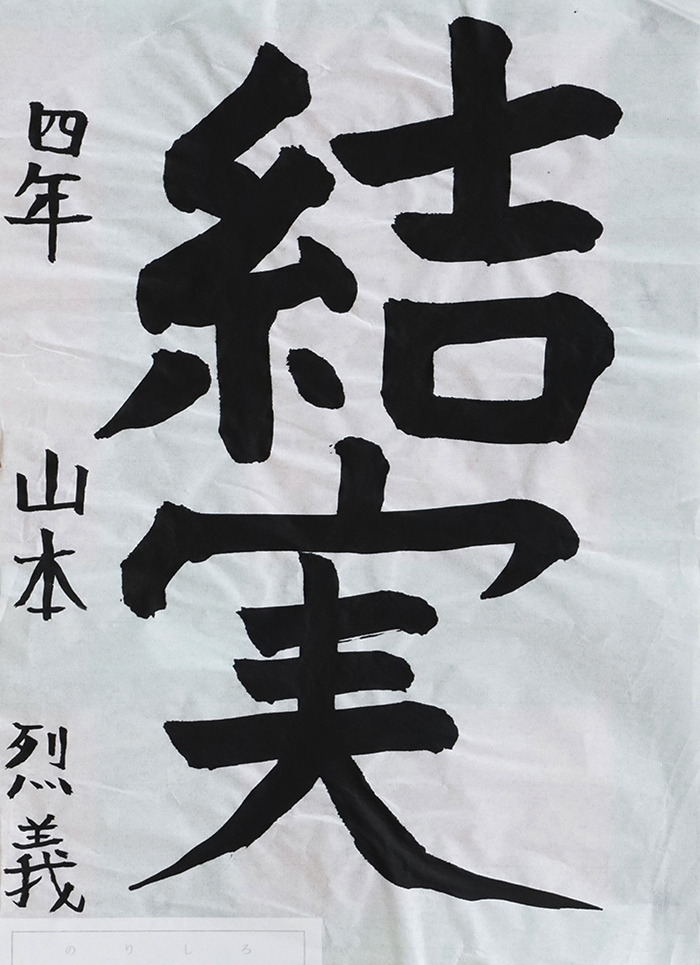 結実
四年 山本 烈義
のりしろ